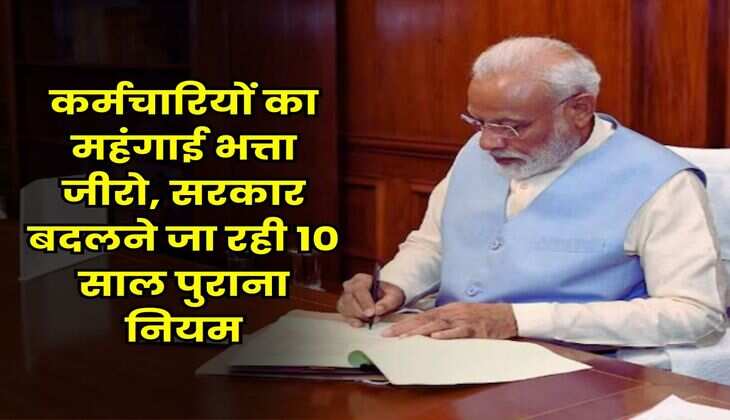 कर्मचारियों का
महंगाई भत्ता
जीरो, सरकार
बदलने जा रही 10
साल पुराना
नियम